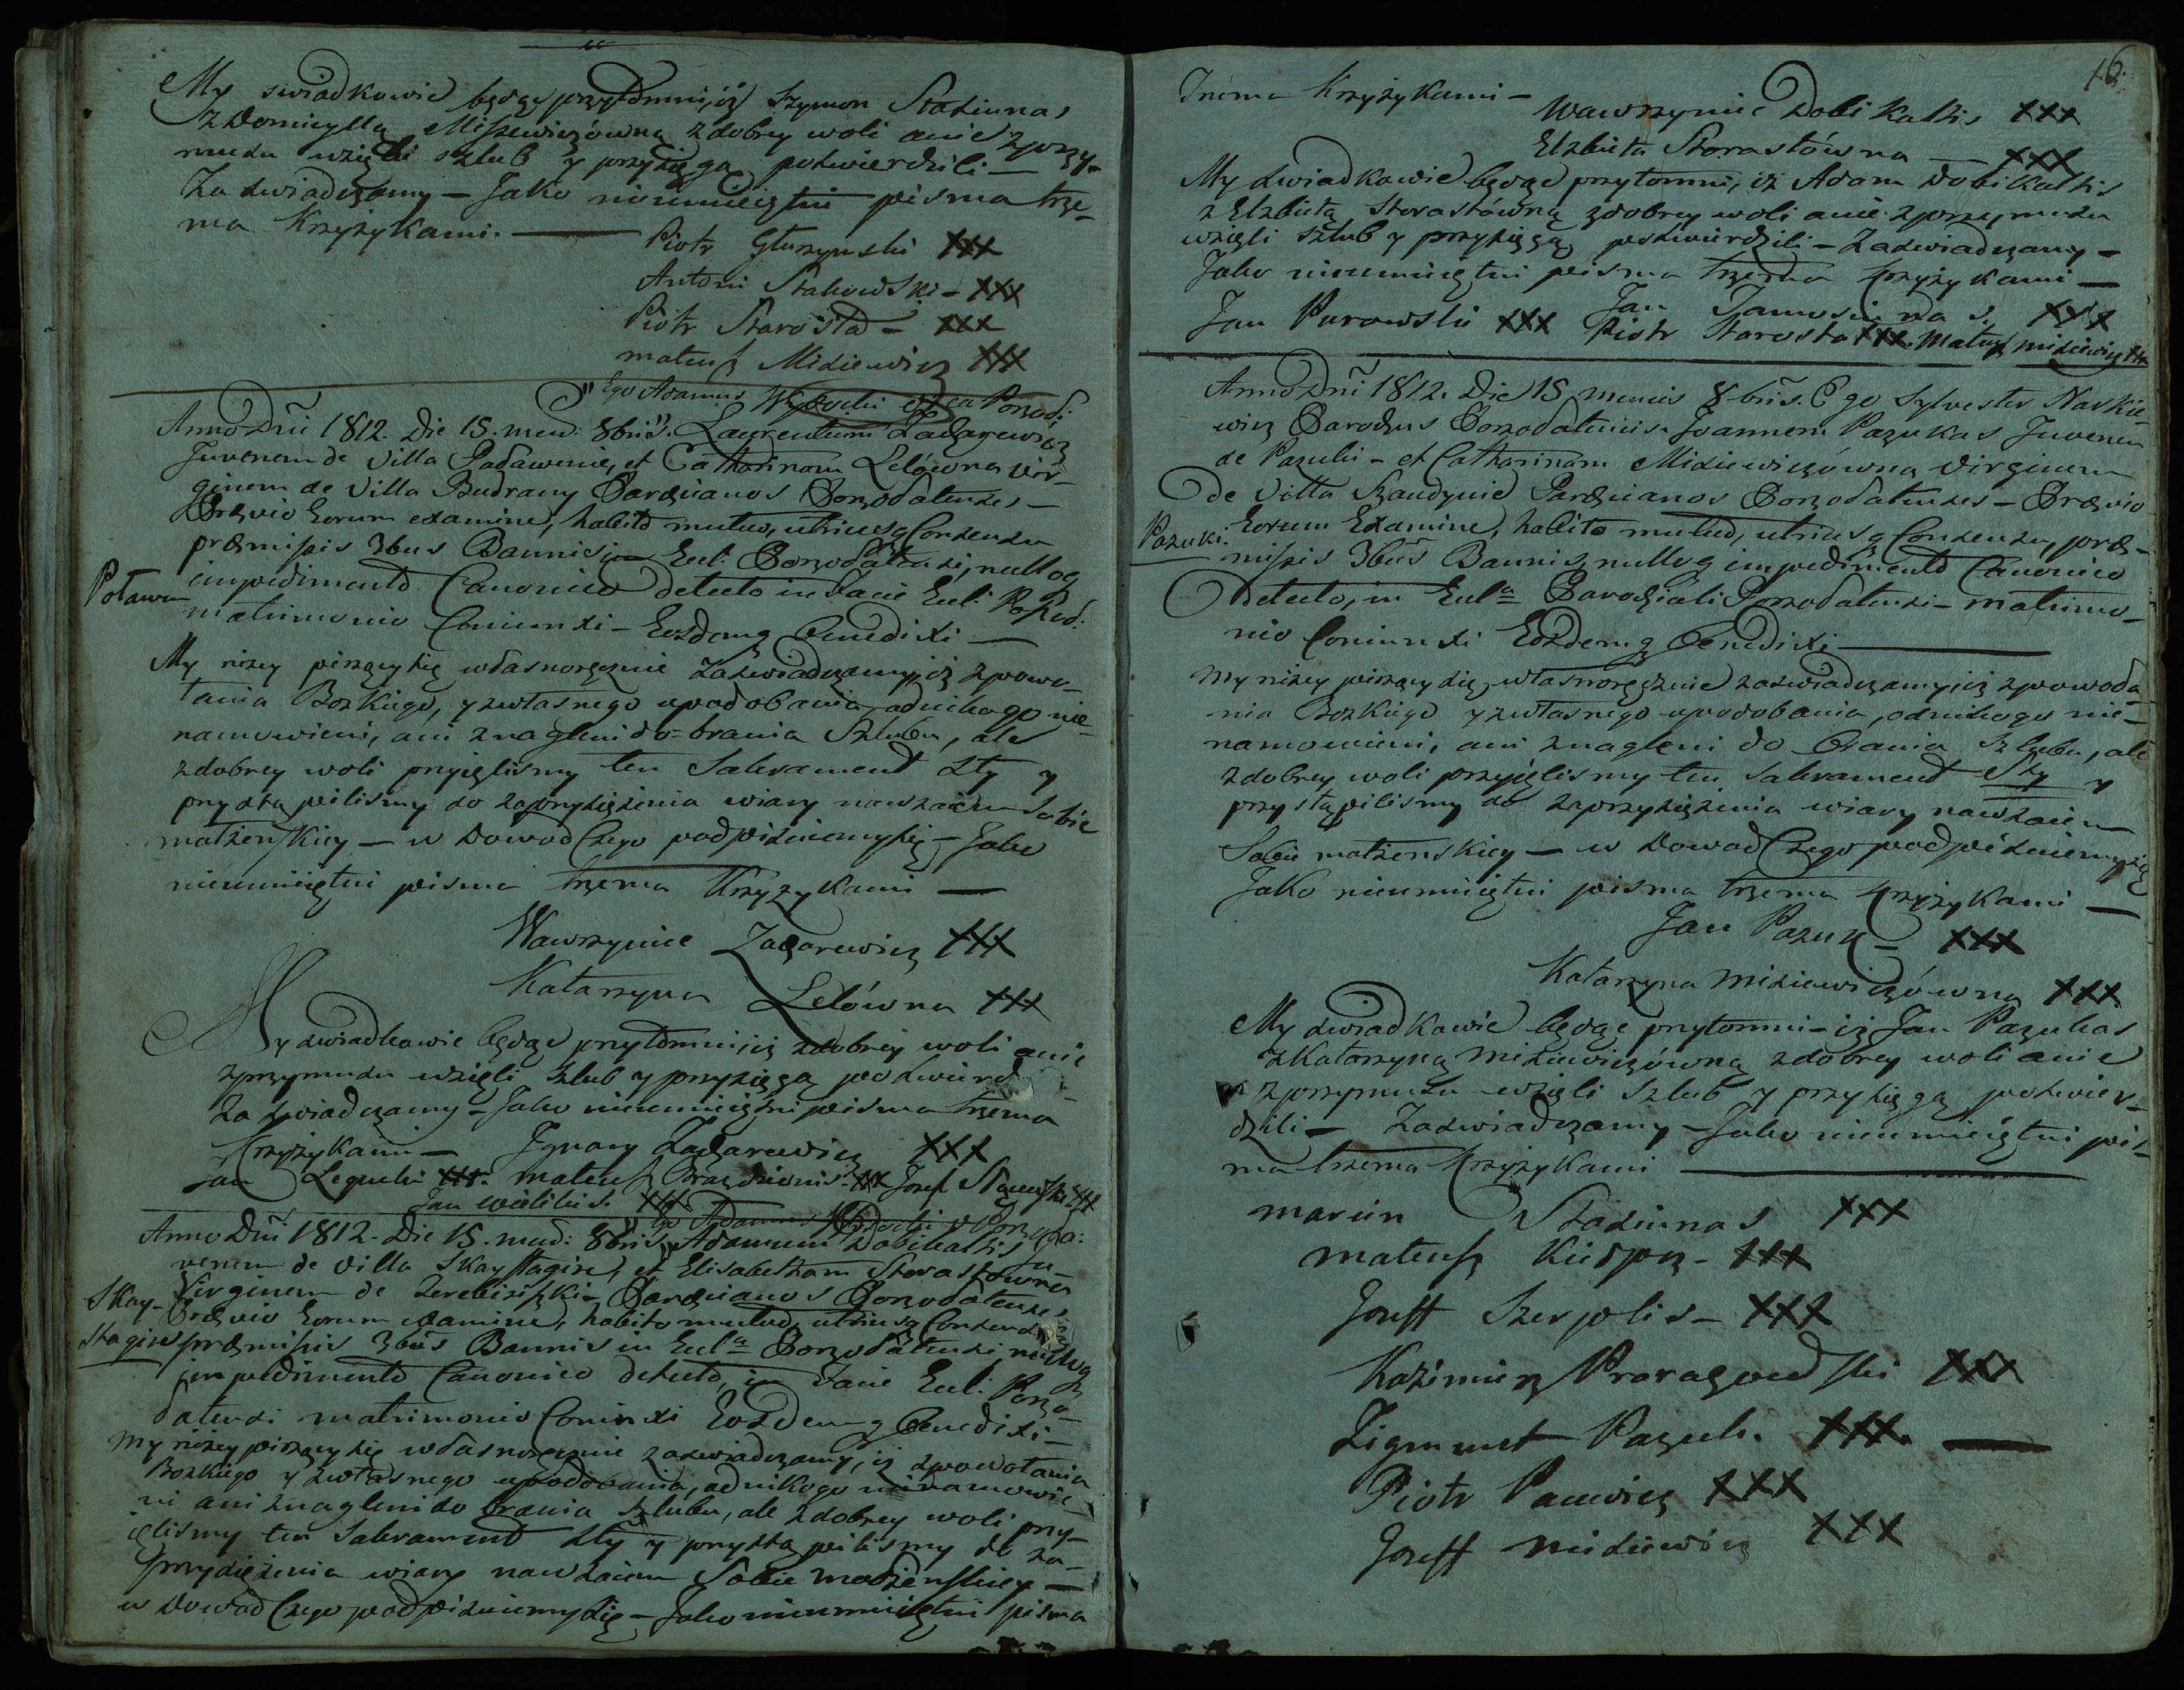 My swiadkowie będąc przytomni, iż Szymon Stasiunas
z Domicyllą Misiewiczówną z dobrey woli a nie z przy-
musu wzięli szlub y przysięgą potwierdzili —
Zaswiadczamy — Jako nieumieiętni pisma trze-
ma Krzyżykami. —
Piotr Głuszynski XXX
Antoni Stakowski — XXX
Piotr Starosta — XXX
mateusz Misiewicz XXX
Ego Adamus
Anno Dni 1812. Die 15. mens: 8bris. Laurentium Zacharewicz
Juvenem de Villa Poławenie, et Catharinam Lelówna Vir-
ginem de Villa Budrany Parochianos Porzodatenses —
Prævio Eorum examine, habito mutuo, utriusq Consensu
præmissis 3bus Bannis in Eccl: Porzodatensi, nulloq
Poławen
impedimento Canonico detecto in Facie Eccl: Porzod:
matrimonio Coniunxi — Eosdemq Benedixi —
My niżey piszący się własnoręcznie Zaswiadczamy, iż z powo-
łania Bozkiego, y z własnego upodobania, od nikogo nie-
namowieni, ani znagleni do brania Szlubu, ale
z dobrey woli przyięlismy ten Sakrament Sty y
przystąpilismy do zaprzysiężenia wiary nawzaiem Sobie
małżenskiey — w Dowod Czego podpisuiemy się — Jako
nieumieiętni pisma trzema Krzyżykami —
Wawrzyniec Zacharewicz XXX
Katarzyna Lelówna XXX
My swiadkowie będąc przytomni, iż z dobrey woli a nie
z przymusu wzięli Szlub y przysięgą potwierd
Zaswiadczamy — Jako nieumieiętni pisma trzema
Krzyżykami — Ignacy Zacharewicz XXX
Jan XXX. mateusz XXX Jozef XXX
Jan XXX
Anno Dni 1812. Die 15. mens: 8bris. Adamum Dobikaltis Ju-
venem de Villa Skaystagire, et Elisabetham Storastowna
Virginem de Parochianos Porzodatenses
Skay-
Prævio Eorum examine, habito mutuo, utriusq Consensu
stagire
præmissis 3bus Bannis in Eccla Porzodatensi, nulloq
impedimento Canonico detecto, in Facie Eccl: Porzo-
datensi matrimonio Coniunxi Eosdemq Benedixi —
My niżey piszący się własnoręcznie zaswiadczamy, iż z powołania
Bozkiego y z własnego upodobania, od nikogo nienamowie-
ni ani znagleni do brania Szlubu, ale z dobrey woli przy-
ięlismy ten Sakrament Sty y przystąpilismy do za-
przysiężenia wiary nawzaiem Sobie małżenskiey —
w Dowod Czego podpisuiemy się — Jako nieumieiętni pisma
16.
Trzema Krzyżykami —
Wawrzyniec Dobikaltis XXX
Elzbieta Storastówna — XXX
My swiadkowie będąc przytomni, iż Adam Dobikaltis
z Elzbietą Storastówną z dobrey woli a nie z przymusu
wzięli szlub y przysięgą potwierdzili — Zaswiadczamy —
Jako nieumieiętni pisma trzema Krzyżykami —
Jan Purowski XXX Jan XXX
Piotr Starosta XXX. Mateusz Misiewicz XXX
Anno Dni 1812. Die 15 mensis 8-bris. Ego Sylvester Narkie-
wicz Parochus Porzodatensis. Joannem Pazukas Juvenem
de Pazuki — et Catharinam Misiewiczówną Virginem
De Villa Szaudynie Parochianos Porzodatenses — Prævio
Pazuki.
Eorum Examine, habito mutuo, utriusq Consensu, præ-
missis 3bus Bannis, nulloq impedimento Canonico
Detecto, in Eccla Parochiali Porzodatensi — matrimo-
nio Coniunxi Eosdemq Benedixi —
My niżey piszący się, własnoręcznie zaswiadczamy, iż z powoła
nia Bozkiego y z własnego upodobania, od nikogo nie-
namowieni, ani znagleni do Brania Szlubu, ale
z dobrey woli przyięlismy ten Sakrament Sty y
przystąpilismy do zaprzysiężenia wiary nawzaiem
Sobie małżenskiey — w Dowod Czego podpisuiemy się
Jako nieumieiętni pisma trzema Krzyżykami —
Jan Pazuk — XXX
Katarzyna Misiewiczówna XXX.
My swiadkowie będąc przytomni — iż Jan Pazukas
z Katarzyną Misiewiczówną z dobrey woli a nie
z przymusu wzięli Szlub y przysięgą potwier-
dzili — Zaswiadczamy — Jako nieumieiętni pis-
ma trzema Krzyżykami —
marcin Stasiunas XXX
mateusz XXX
Joseff Szerpolis — XXX
Kazimierz XXX
Zigmunt Pazuk. XXX. —
Piotr Pacewicz XXX
Joseff Misiewicz XXX